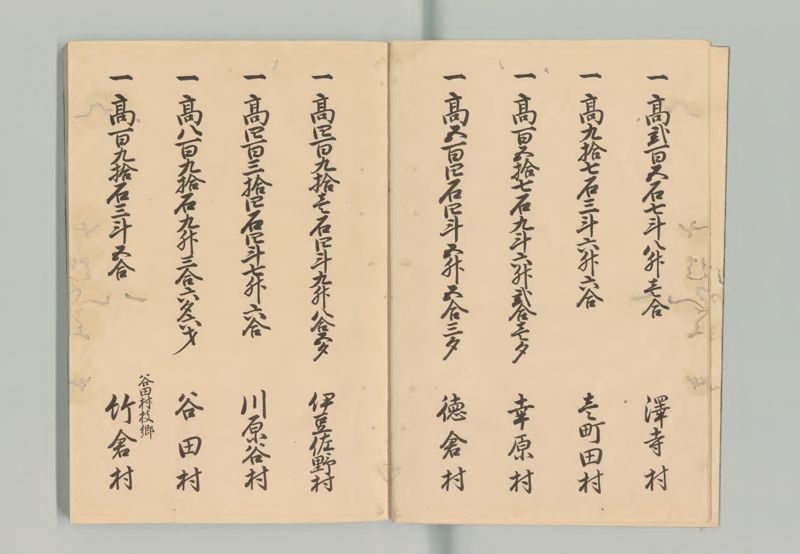 一高弐百五石七斗八舛壱合 澤寺村
一高九拾七石三斗六舛六合 壱町田村
一高百五拾七石九斗六舛弐合壱夕 幸原村
一高五百四石四斗五舛五合三夕 徳倉村
一高四百九拾壱石四斗九舛八合五夕 伊豆佐野村
一高四百三拾四石四斗七舛六合 川原谷村
一高八百九拾石九舛三合六夕六才 谷田村
一高百九拾石三斗五合 竹倉村
谷田村枝郷